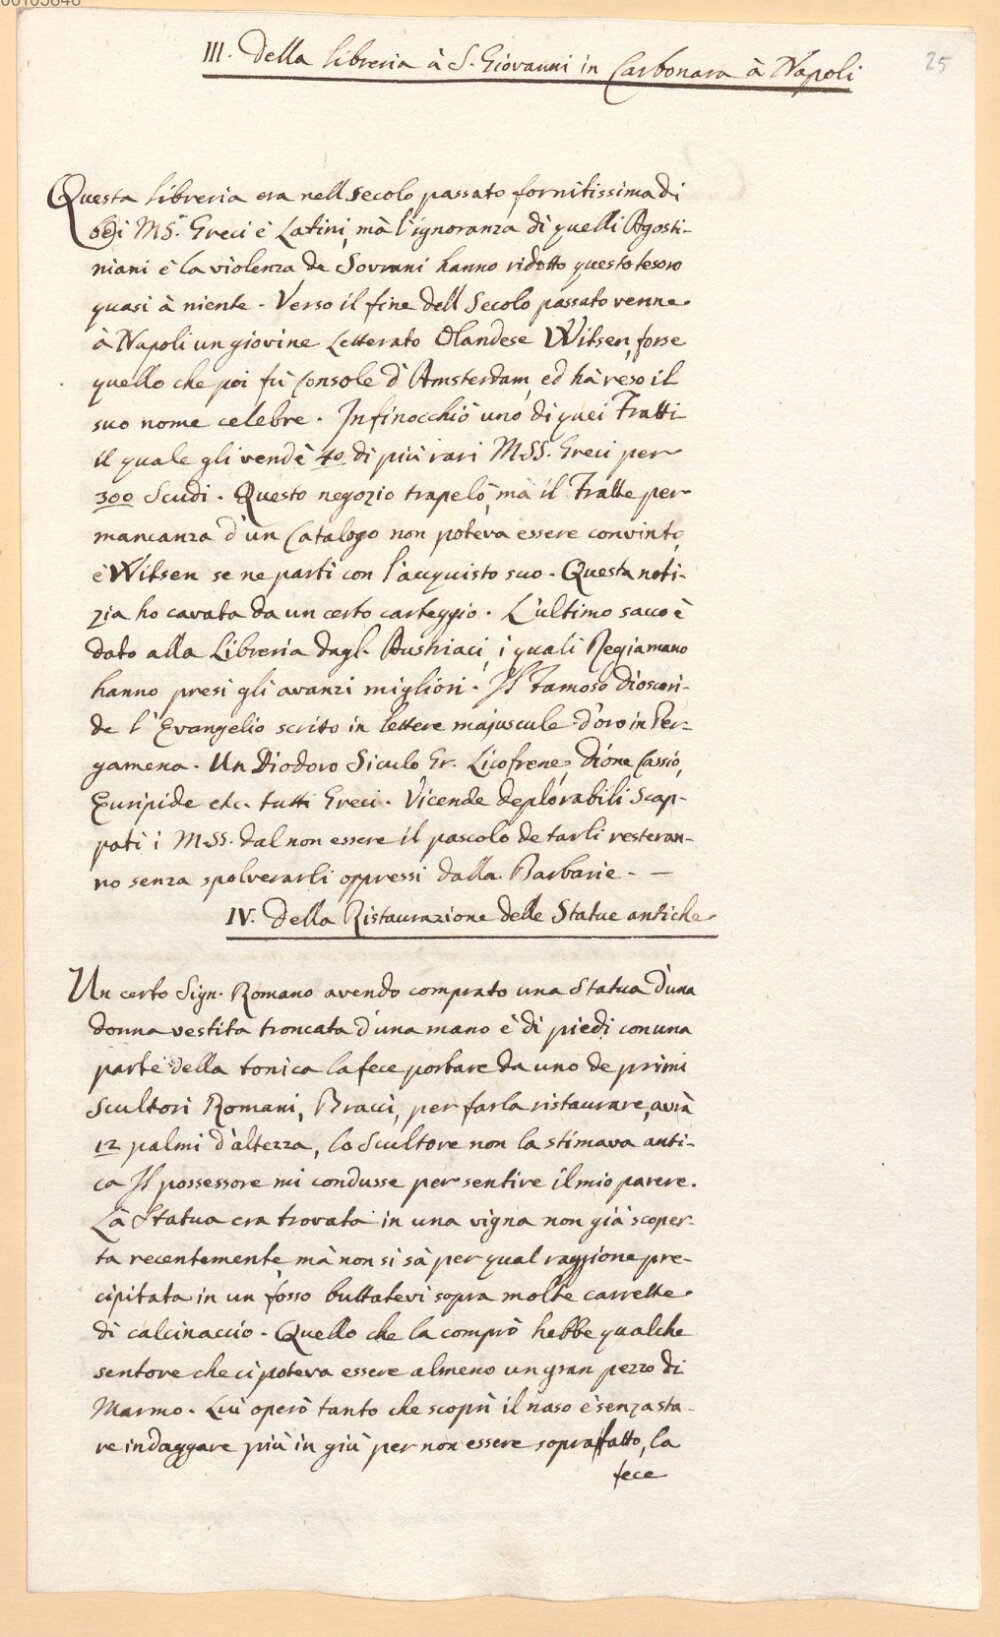 00105846
25
III. Della libreria à S. Giovanni in Carbonara à Napoli
Questa libreria era nell secolo passato fornitissima di
MS. Greci è Latini, mà l'ignoranza di quelli Agosti-
niani è la violenza de Sovrani hanno ridotto questo tesoro
quasi à niente. Verso il fine dell Secolo passato venne
à Napoli un giovine Letterato Olandese Witsen, forse
quello che poi fù Console d'Amsterdam, ed hà reso il
suo nome celebre. Infinocchiò uno di quei Fratti
il quale gli vendè 40 di più rari MSS. Greci per
300 Scudi. Questo negozio trapelò, mà il Fratte per
mancanza d'un Catalogo non poteva essere convinto,
è Witsen se ne partì con l'acquisto suo. Questa noti-
zia ho cavata da un certo carteggio. L'ultimo sacco è
dato alla Libreria dagl. Austriaci, i quali Regia manu
hanno presi gli avanzi migliori. Il famoso Dioscori-
de l'Evangelio scritto in lettere majuscule d'oro in Per-
gamena. Un Diodoro Siculo Gr. Licofrene, Dione Cassio,
Euripide etc. tutti Greci. Vicende deplorabili Scap-
pati i MSS. dal non essere il pascolo de tarli resteran-
no senza spolverarli oppressi dalla Barbarie. —
IV. Della Ristaurazione delle Statue antiche.
Un certo Sign. Romano avendo comprato una Statua d'una
donna vestita troncata d'una mano è di piedi con una
parte della tonica la fece portare da uno de primi
Scultori Romani, Bracci, per farla ristaurare, avrà
12 palmi d'altezza, lo Scultore non la stimava anti-
ca Il possessore mi condusse per sentire il mio parere.
La Statua era trovata in una vigna non già scoper-
ta recentemente mà non si sà per qual raggione pre-
cipitata in un fosso buttatevi sopra molte carrette
di calcinaccio. Quello che la comprò hebbe qualche
sentore che ci poteva essere almeno un gran pezzo di
Marmo. Lui operò tanto che scoprì il naso è senza sta-
re indaggare più in giù per non essere sopraffatto, la
fece